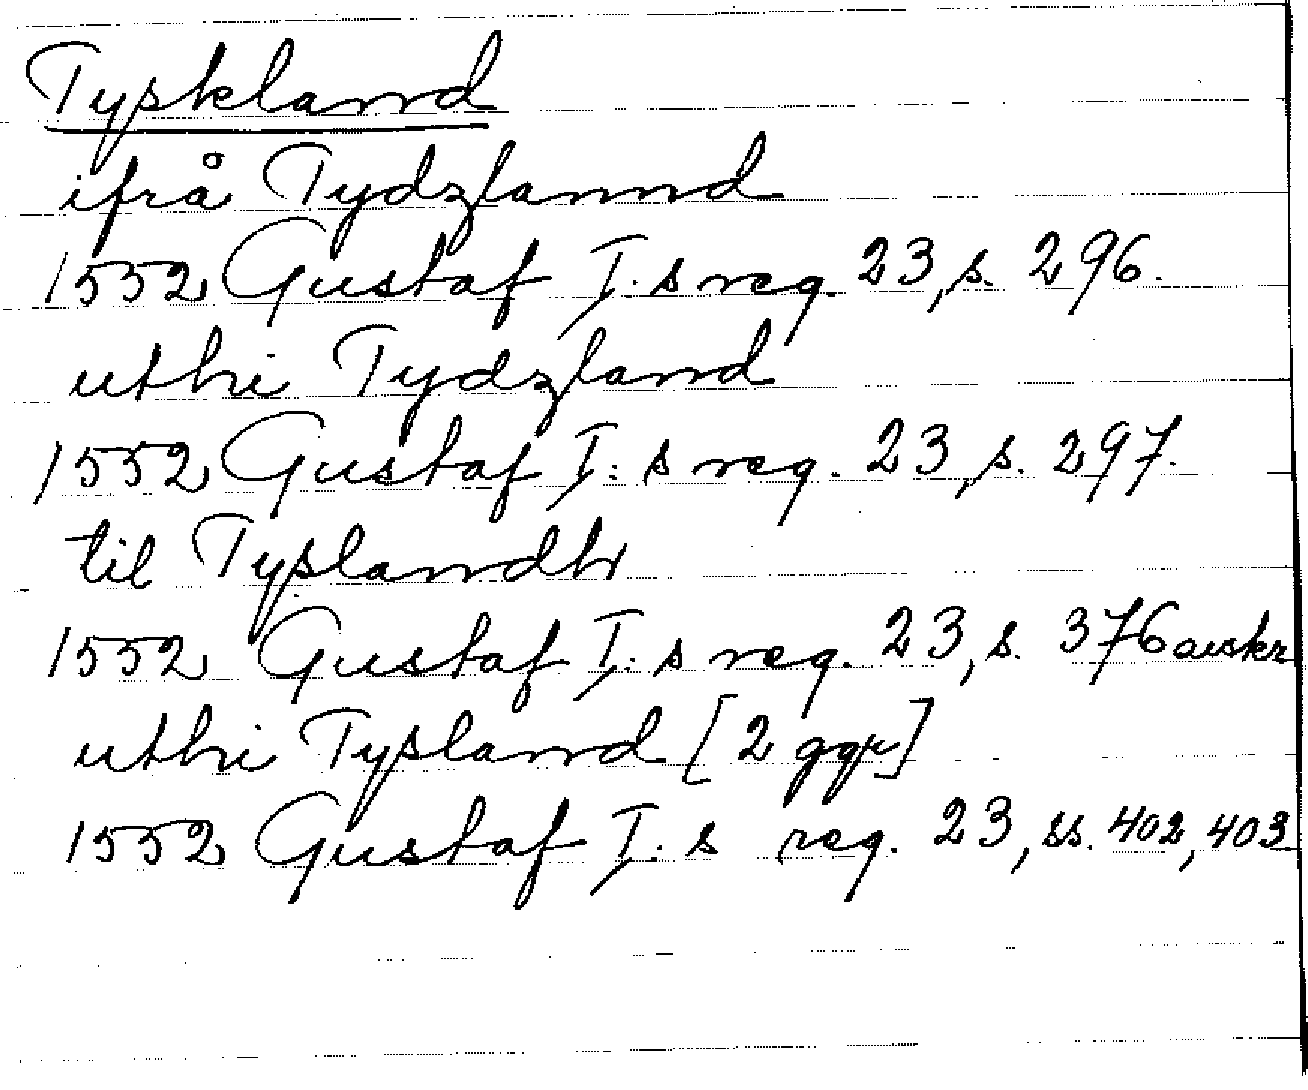 Tyskland
ifrå Tydzlannd
1552 Gustaf I. s reg. 23, s. 296.
uthi Tydzland
1552 Gustaf I: s reg. 23, s. 297.
til Tyslandh
1552 Gustaf I: s reg. 23, s. 376 avskr
uthi Tysland [2 ggr]
1552 Gustaf I. s reg. 23, ss. 402, 403